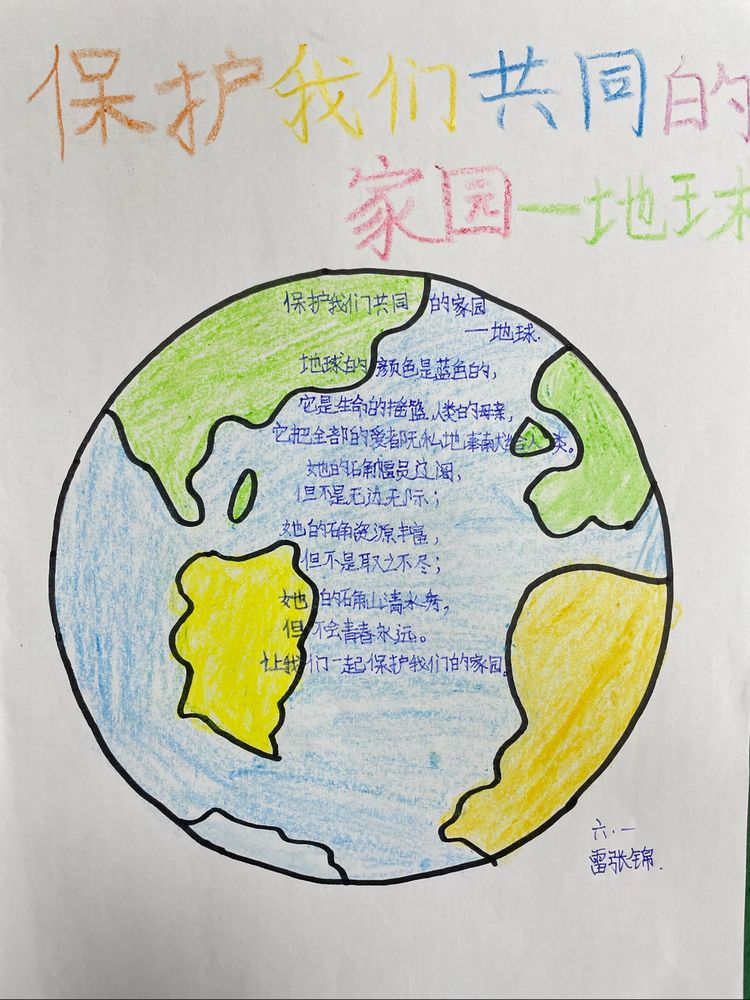 保护我们共同的
家园一地球
保护我们共同的家园
一地球.
地球的颜色是蓝色的,
它是生命的摇篮,人类的母亲,
它把全部的爱都无私地奉献给人类。
她的确幅员辽阔,
但不是无边无际;
她的确资源丰富,
但不是取之不尽;
她的的确山清水秀,
但不会青春永远。
让我们一起保护我们的家园。
六.一
雷张锦.